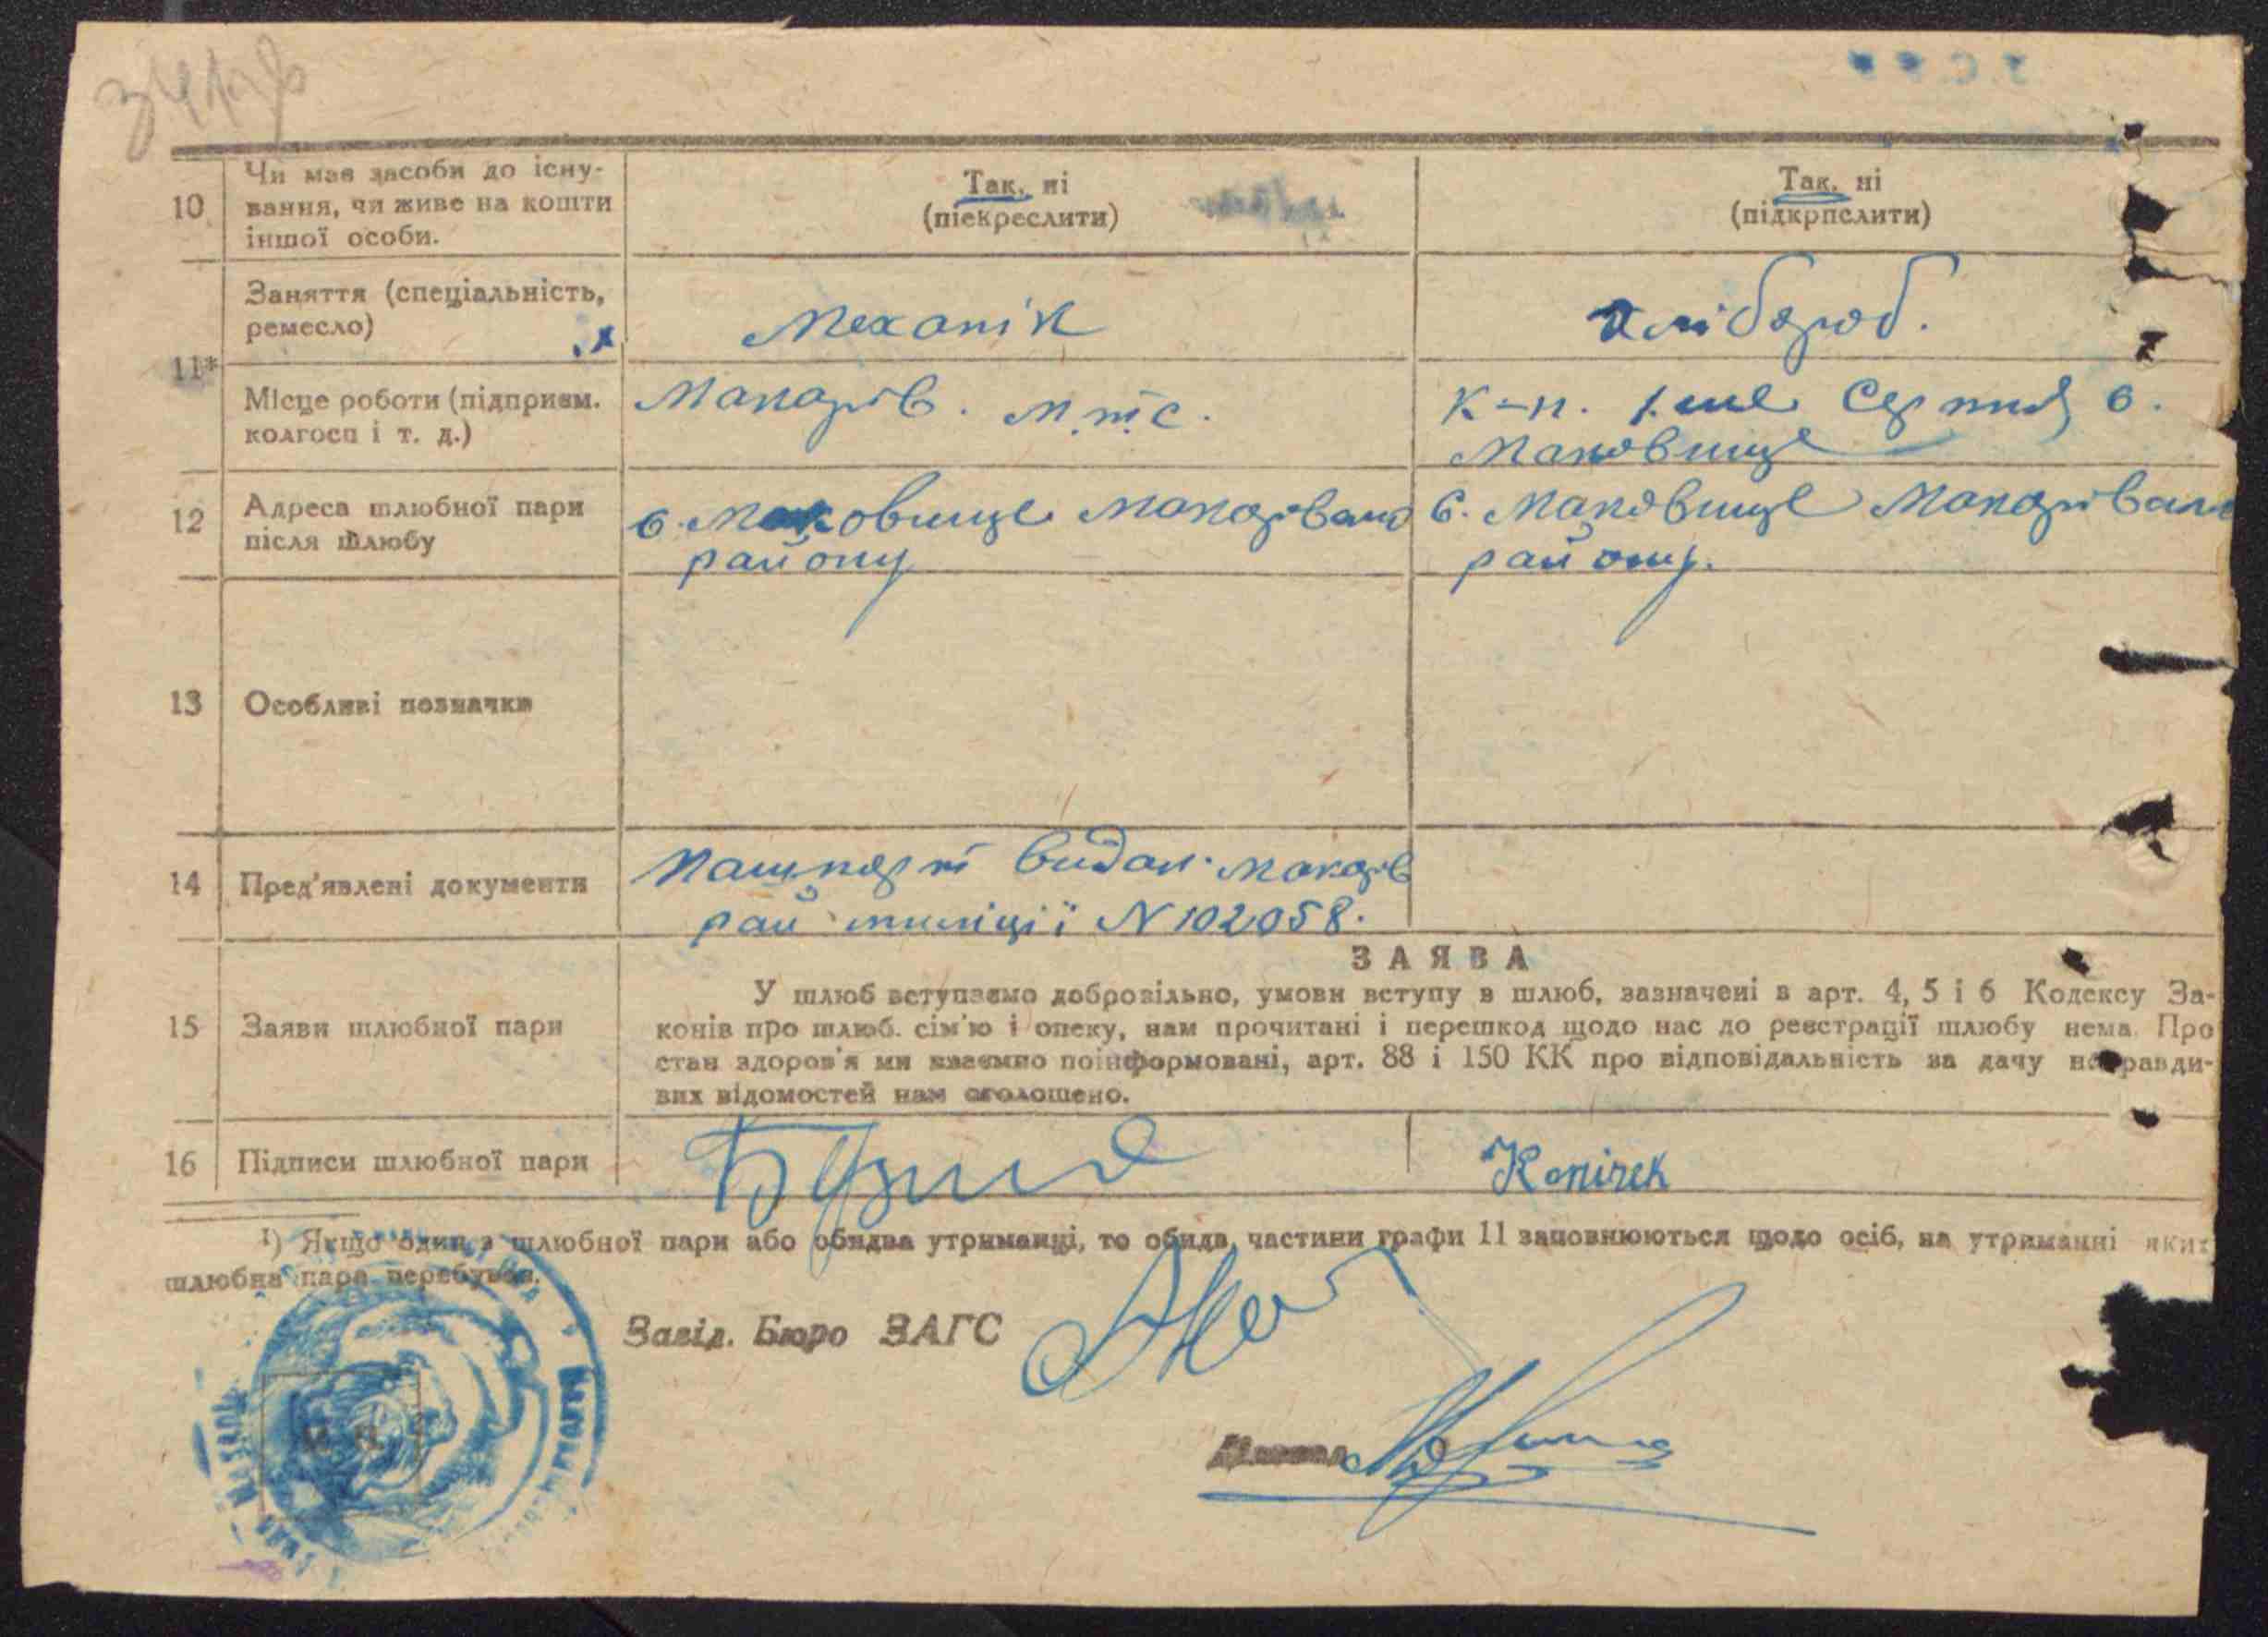 10
Чи має засоби до існу-
вання, чи живе на кошти
іншої особи.
Так, ні
(піекреслити)
Так, ні
(підкрпслити)
11*
Заняття (спеціальність,
ремесло)
Механік
хлібороб.
Місце роботи (підприєм.
колгосп і т. д.)
Макарів. М.т.с.
к-п. 1.ше Серпня с.
Маковище
12
Адреса шлюбної пари
після шлюбу
с. Маковище Макарівськ
району
с. Маковище Макарівськ
району.
13
Особливі позначки
14
Пред'явлені документи
Пашпорт видан. Макарів
рай міліції N 102058.
15
Заяви шлюбної пари
ЗАЯВА
У шлюб вступаємо добровільно, умови вступу в шлюб, зазначені в арт. 4, 5 і 6 Кодексу За-
конів про шлюб. сім'ю і опеку, нам прочитані і перешкод щодо нас до реєстрації шлюбу нема. Про
стан здоров'я ми взаємно поінформовані, арт. 88 і 150 КК про відповідальність за дачу неправди-
вих відомостей нам оголошено.
16
Підписи шлюбної пари
Копічек
1) Якщо один з шлюбної пари або обидва утриманці, то обидв частини графи 11 заповнюються щодо осіб, на утриманні яких
шлюбна пара перебуває.
Завід. Бюро ЗАГС